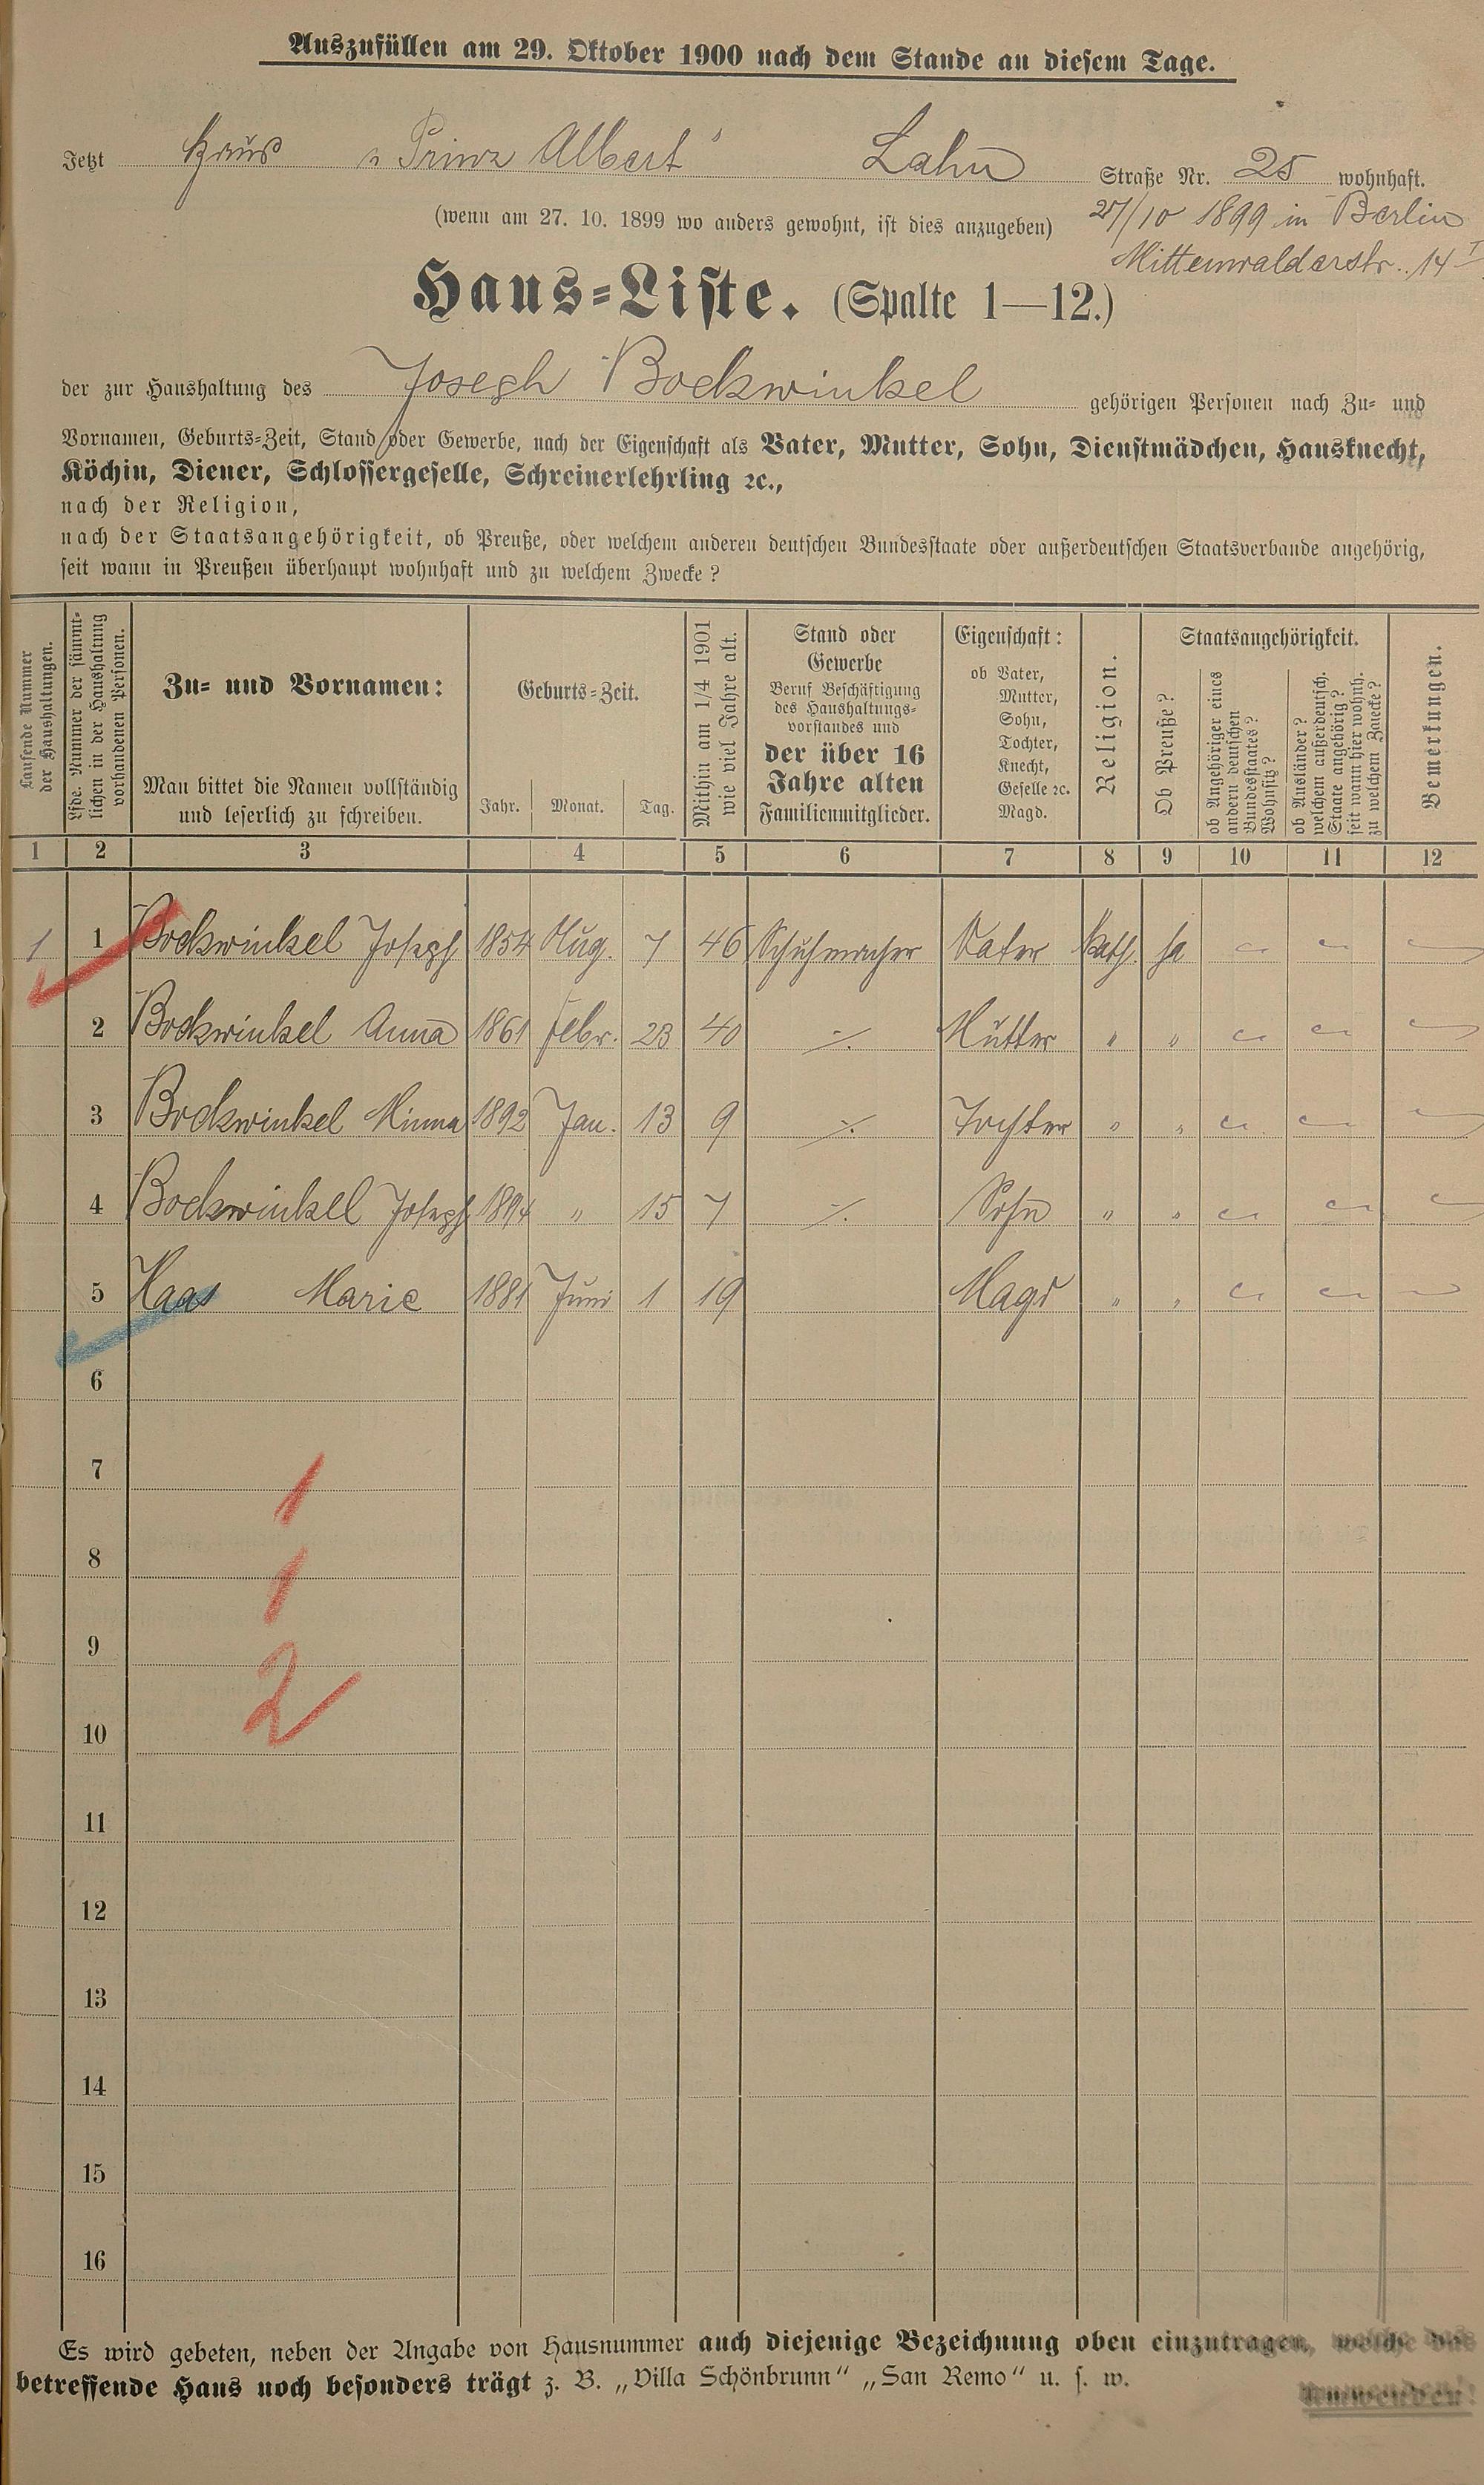 Auszufüllen am 29. Oktober 1900 nach dem Stande an diesem Tage.
Jetzt Haus „Prinz Albert" Lahn Straße Nr. 25 wohnhaft.
(wenn am 27. 10. 1899 wo anders gewohnt, ist dies anzugeben) 27/10 1899 in Berlin
Mittenwalderstr. 14 I
Haus-Liste. (Spalte 1—12.)
der zur Haushaltung des Joseph Bockwinkel gehörigen Personen nach Zu- und
Vornamen, Geburts-Zeit, Stand oder Gewerbe, nach der Eigenschaft als Vater, Mutter, Sohn, Dienstmädchen, Hausknecht,
Köchin, Diener, Schlossergeselle, Schreinerlehrling ꝛc.,
nach der Religion,
nach der Staatsangehörigkeit, ob Preuße, oder welchem anderen deutschen Bundesstaate oder außerdeutschen Staatsverbande angehörig,
seit wann in Preußen überhaupt wohnhaft und zu welchem Zwecke?
Laufende Nummer
der Haushaltungen.
Lfde. Nummer der sämmt-
lichen in der Haushaltung
vorhandenen Personen.
Zu- und Vornamen:
Man bittet die Namen vollständig
und leserlich zu schreiben.
Geburts-Zeit.
Jahr. Monat. Tag.
Mithin am 1/4 1901
wie viel Jahre alt.
Stand oder
Gewerbe
Beruf Beschäftigung
des Haushaltungs-
vorstandes und
der über 16
Jahre alten
Familienmitglieder.
Eigenschaft:
ob Vater,
Mutter,
Sohn,
Tochter,
Knecht,
Geselle ꝛc.
Magd.
Religion.
Staatsangehörigkeit.
Ob Preuße?
ob Angehöriger eines
andern deutschen
Bundesstaates?
Wohnsitz?
ob Ausländer?
welchem außerdeutsch.
Staate angehörig?
seit wann hier wohnh.
zu welchem Zwecke?
Bemerkungen.
1 2 3 4 5 6 7 8 9 10 11 12
1 1 Bockwinkel Joseph 1854 Aug. 7 46 Schuhmacher Vater Kath. ja
2 Bockwinkel Anna 1861 Febr. 23 40 ·/. Mutter " "
3 Bockwinkel Minna 1892 Jan. 13 9 ·/. Tochter " "
4 Bockwinkel Joseph 1894 " 15 7 ·/. Sohn " "
5 Haas Marie 1881 Juni 1 19 Magd " "
6
7
1
8
1
9
2
10
11
12
13
14
15
16
Es wird gebeten, neben der Angabe von Hausnummer auch diejenige Bezeichnung oben einzutragen, welche das
betreffende Haus noch besonders trägt z. B. „Villa Schönbrunn" „San Remo" u. s. w.
Umwenden!